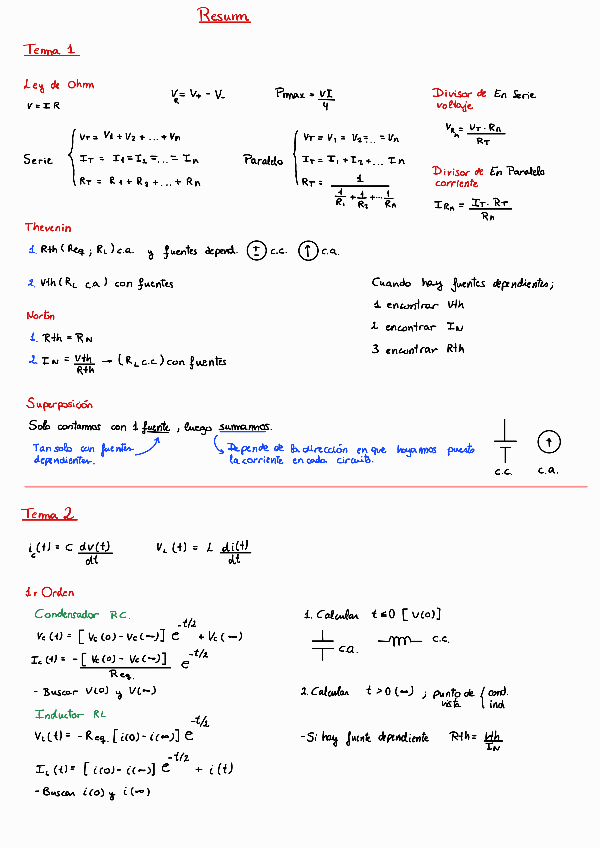 Resum
Tema 1
Ley de Ohm
V = I R
V_R = V+ - V-
Pmax = VI/4
Divisor de En Serie
voltaje
V_Rn = VT · Rn / RT
Serie
VT = V1 + V2 + ... + Vn
IT = I1 = I2 = ... = In
RT = R1 + R2 + ... + Rn
Paralelo
VT = V1 = V2 = ... = Vn
IT = I1 + I2 + ... In
RT = 1 / (1/R1 + 1/R2 + ... 1/Rn)
Divisor de En Paralelo
corriente
I_Rn = IT · RT / Rn
Thevenin
1. Rth (Req ; RL) c.a. y fuentes depend. c.c. c.a.
2. Vth (RL c.a) con fuentes
Norton
1. Rth = RN
2. IN = Vth/Rth → (RL c.c) con fuentes
Cuando hay fuentes dependientes;
1 encontrar Vth
2 encontrar IN
3 encontrar Rth
Superposición
Solo contamos con 1 fuente, luego sumamos.
Tan solo con fuentes
dependientes.
Depende de la dirección en que hayamos puesto
la corriente en cada circuito.
c.c. c.a.
Tema 2
ic(t) = C dv(t)/dt
VL(t) = L di(t)/dt
1r Orden
Condensador RC.
Vc(t) = [Vc(0) - Vc(∞)] e^-t/2 + Vc(∞)
Ic(t) = - [Vc(0) - Vc(∞)] / Req. e^-t/2
- Buscar V(0) y V(∞)
Inductor RL
VL(t) = - Req. [i(0) - i(∞)] e^-t/2
IL(t) = [i(0) - i(∞)] e^-t/2 + i(t)
- Buscar i(0) y i(∞)
1. Calcular t≤0 [V(0)]
c.a. c.c.
2. Calcular t>0 (∞) ; punto de { cond.
vista ind.
- Si hay fuente dependiente Rth = Vth/IN